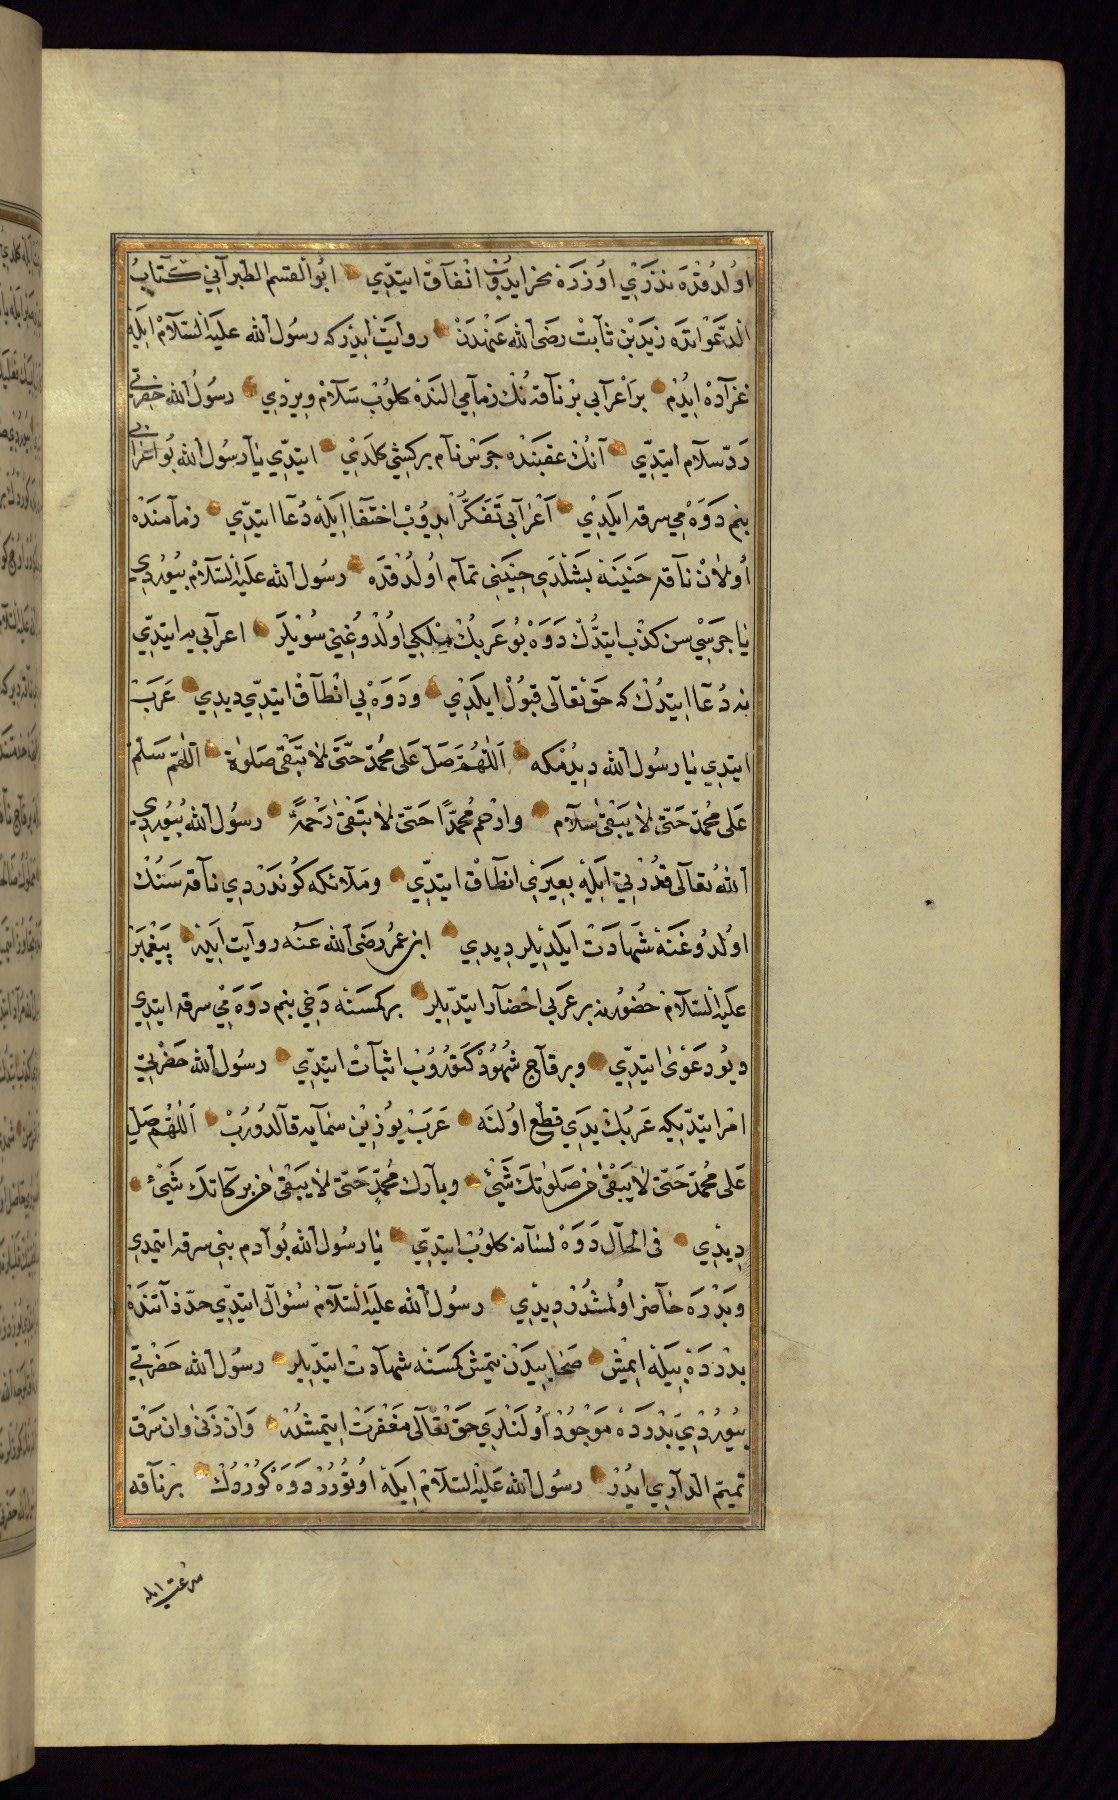 اولدقده نذرڭي اوزره نحر ايدوب انفاق ايتدي ابو القسم الطبراني كتاب
الدعواتده زيد بن ثابت رضى الله عنهدن روايت ايدر كه رسول الله عليه السلام ايله
غزاده ايدم بر اعرابي بر ناقه نڭ زمامي النده كلوب سلام ويردي رسول الله حضرتي
رد سلام ايتدي آنڭ عقبنده جرس نام بر كشي كلدي ايتدي يا رسول الله بو اعرابي
بنم دوه مي سرقه ايلدي اعرابي تفكر ايدوب اختفا ايله دعا ايتدي زمامنده
اولان ناقه حنينه بشلدي حنيني تمام اولدقده رسول الله عليه السلام بيوردي
يا جرسي سن كذب ايتدڭ دوه بو عربڭ ملكي اولدوغيني سويلر اعرابي يه ايتدي
نه دعا ايتدڭ كه حق تعالى قبول ايلدي و دوه يي انطاق ايتدي ديدي عرب
ايتدي يا رسول الله ديدمكه اللهم صل على محمد حتى لا تبقى صلوة اللهم سلم
على محمد حتى لا يبقى سلام وارحم محمدا حتى لا تبقى رحمة رسول الله بيوردي
الله تعالى قدرتي ايله بعيري انطاق ايتدي و ملائكه كوندردي ناقه سنڭ
اولدوغنه شهادت ايلديلر ديدي ابن عمر رضى الله عنه روايت ايله پيغمبر
عليه السلام حضورنه بر عربي احضار ايتديلر بر كمسنه دخي بنم دوه مي سرقه ايتدي
ديو دعوى ايتدي و بر قاچ شهود كتوروب اثبات ايتدي رسول الله حضرتي
امر ايتديكه عربڭ يدي قطع اولنه عرب يوزين سمايه قالدورب اللهم صل
على محمد حتى لا يبقى من صلوتك شئ وبارك محمد حتى لا يبقى من بركاتك شئ
ديدي فى الحال دوه لسانه كلوب ايتدي يا رسول الله بو آدم بني سرقه ايتمدي
و بدرده حاضر اولمشدر ديدي رسول الله عليه السلام سئوال ايتدي حد ذاتنده
بدرده بيله ايمش صحابيدن يتمش كمسنه شهادت ايتديلر رسول الله حضرتي
بيوردي بدرده موجود اولنلري حق تعالى مغفرت ايتمشدر وان زنى وان سرق
تميم الداري ايدر رسول الله عليه السلام ايله اوتورر دوه كوردڭ بر ناقه
سرعت ايله